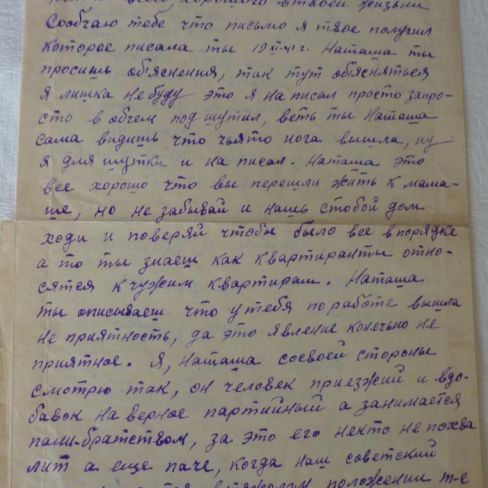 всего хорошого в твоей жизни
Сообчаю тебе что письмо я твое получил
которое писала ты 19 г. Наташа ты
просишь обяснения, так тут обясняться
я лишка не буду это я на писал просто запро-
сто в обчем под шутил, веть ты Наташа
сама видишь что чьято нога вышла, ну
я для шутки и на писал. Наташа это
все хорошо что вы перешли жить к мама-
ше, но не забывай и нашь стобой дом
ходи и поверяй чтобы было все в порядке
а то ты знаешь как квартиранты отно-
сятся к чужим квартирам. Наташа
ты описываеш что у тебя по работе вышла
не приятность, да это явление конечно не
приятное. Я, Наташа соевоей стороны
смотрю так, он человек приезжий и вдо-
бавок на верное партийный а занимается
пани-братством, за это его нехто не похва
лит а еще паче, когда наш советский
положении т-е